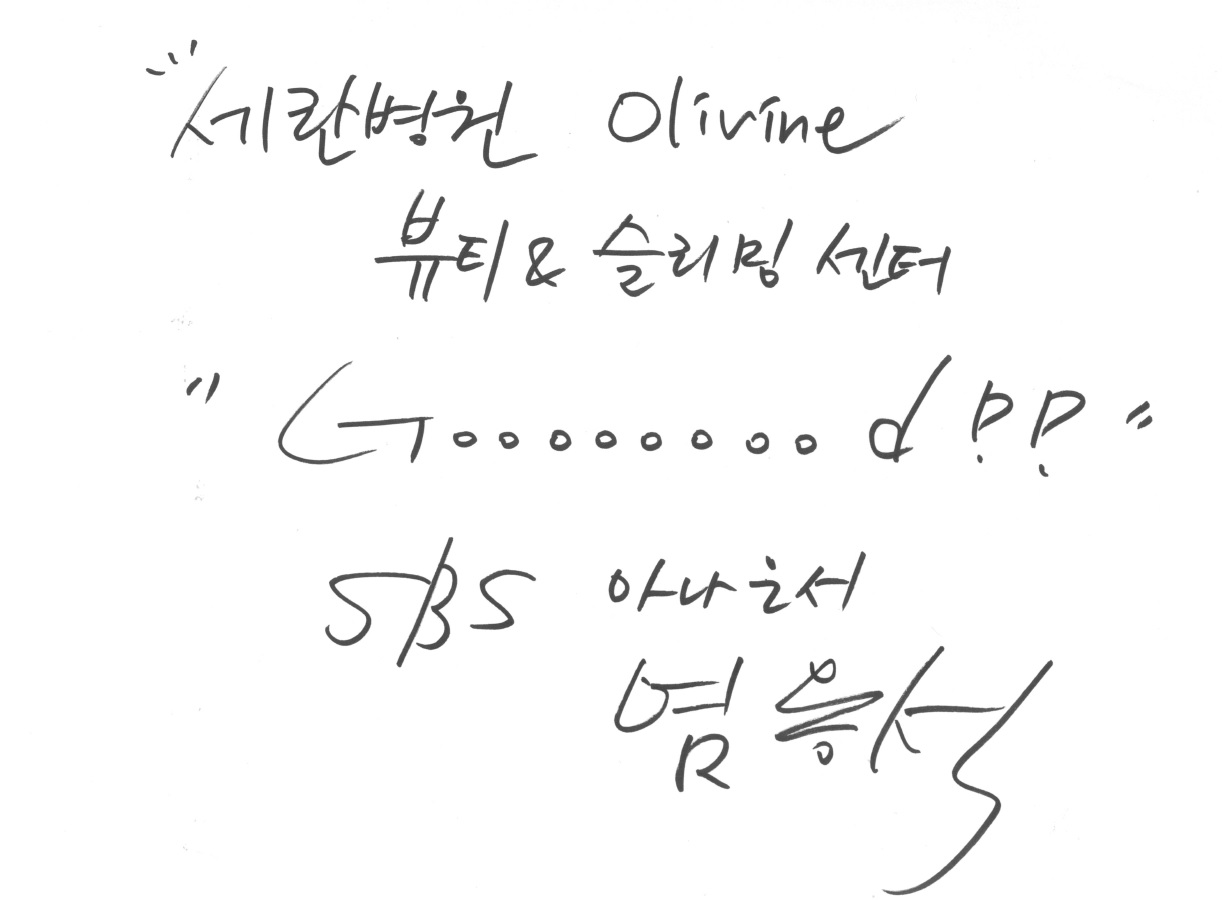 세란병원 Olivine
뷰티 & 슬리밍 센터
"Gooooooood!!"
SBS 아나운서
염용석